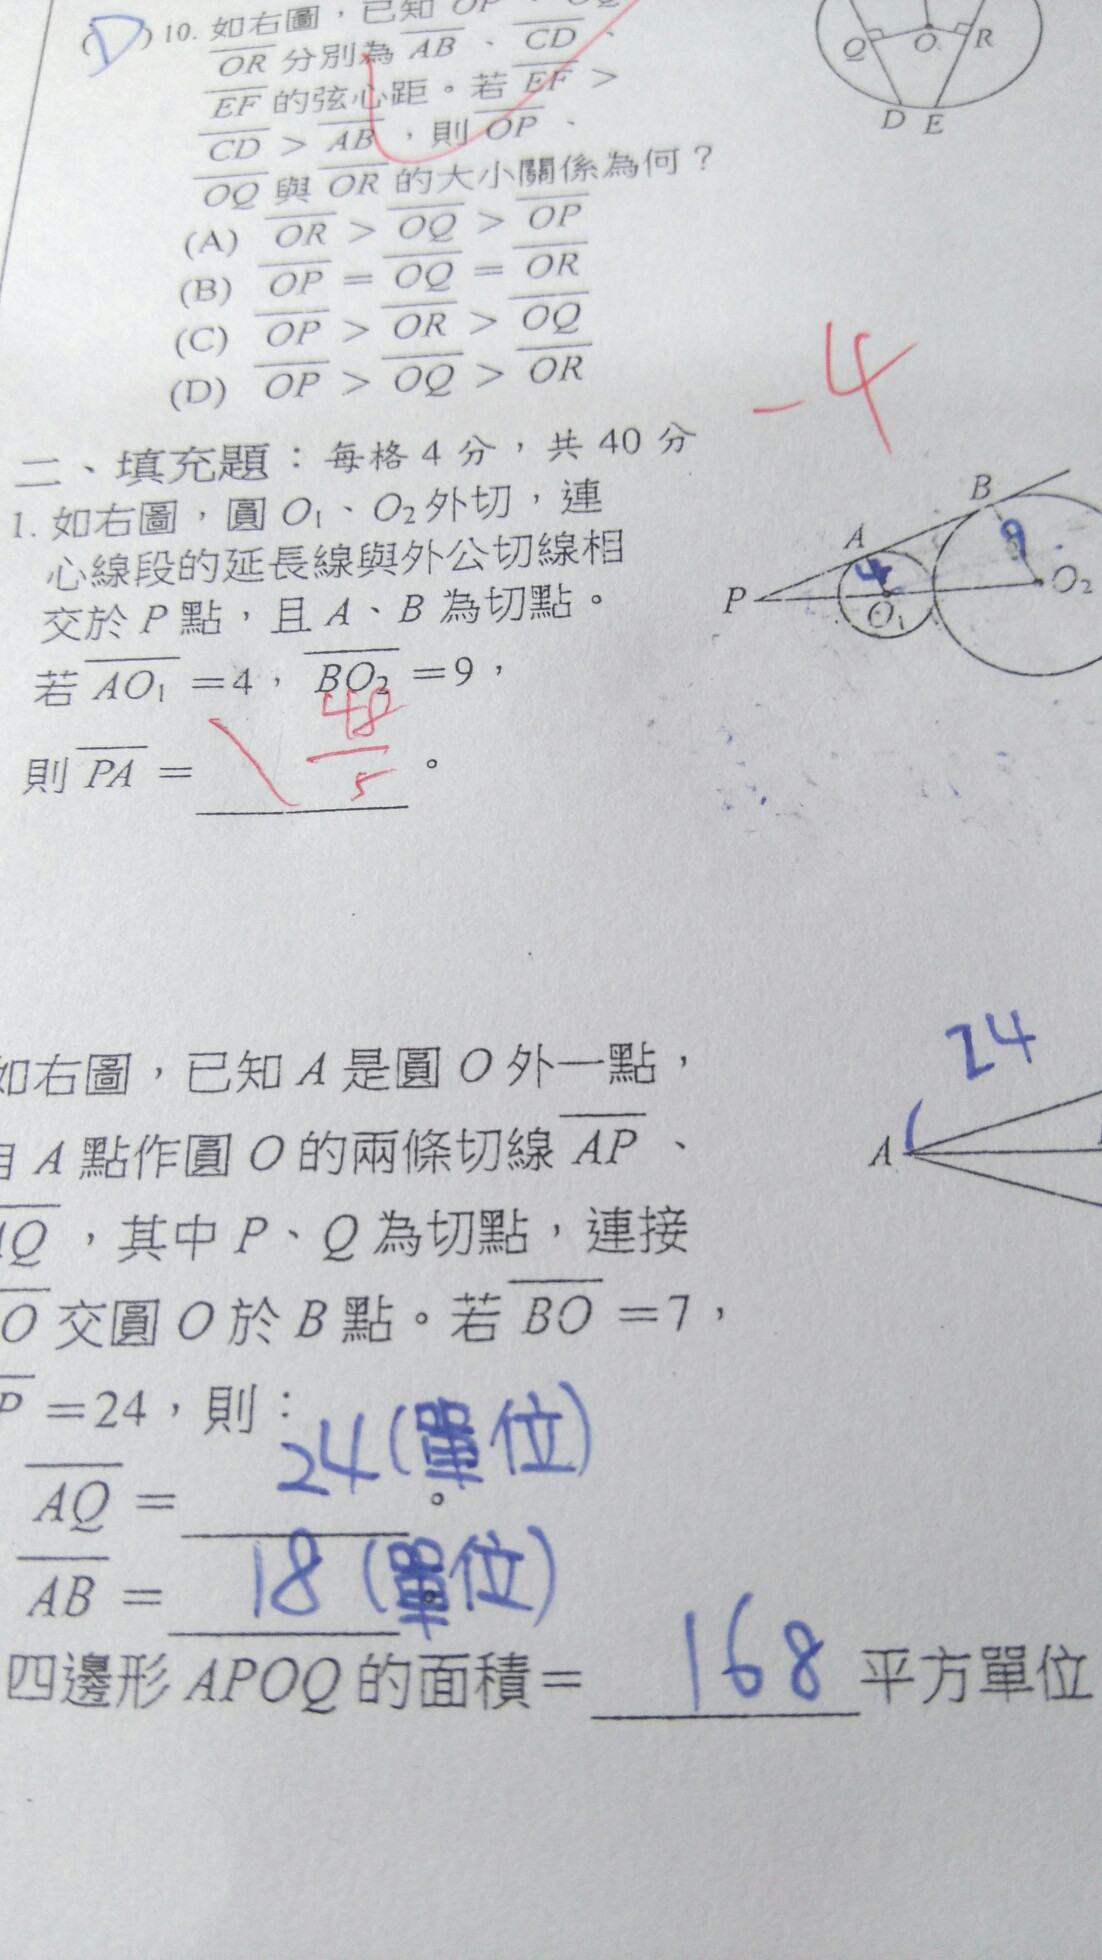 (D) 10. 如右圖，已知 OP、OQ
OR 分別為 AB、CD、
EF 的弦心距。若 EF >
CD > AB，則 OP、
OQ 與 OR 的大小關係為何？
(A) OR > OQ > OP
(B) OP = OQ = OR
(C) OP > OR > OQ
(D) OP > OQ > OR
Q O R
D E
-4
二、填充題：每格 4 分，共 40 分
1. 如右圖，圓 O₁、O₂ 外切，連
心線段的延長線與外公切線相
交於 P 點，且 A、B 為切點。
若 AO₁ =4，BO₂ =9，
則 PA = 48/5 。
B
A 9
P 4 O₁ O₂
如右圖，已知 A 是圓 O 外一點，
自 A 點作圓 O 的兩條切線 AP、
AQ，其中 P、Q 為切點，連接
O 交圓 O 於 B 點。若 BO =7，
P =24，則：
AQ = 24(單位) 。
AB = 18(單位) 。
四邊形 APOQ 的面積= 168 平方單位
24
A